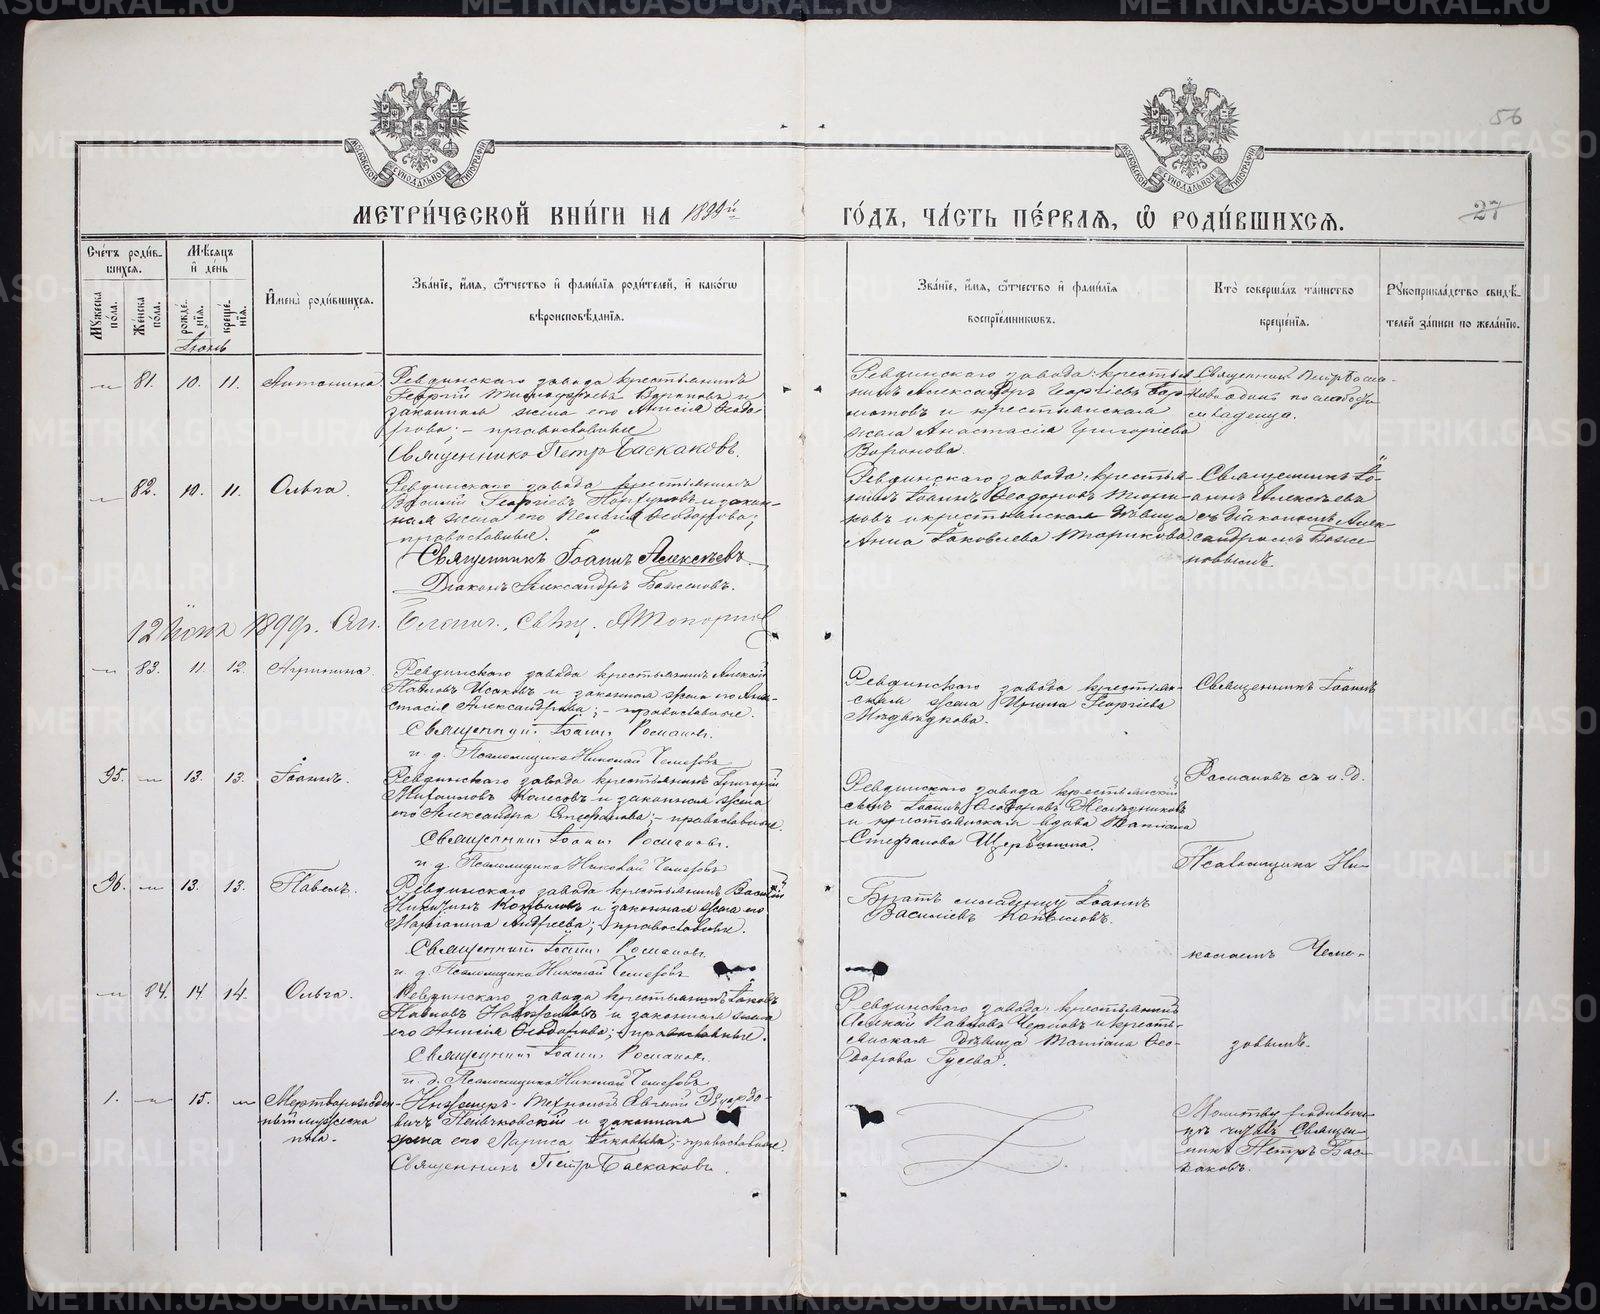 56
27
МОСКОВСКОЙ СѴНОДАЛЬНОЙ ТИПОГРАФІИ
МОСКОВСКОЙ СѴНОДАЛЬНОЙ ТИПОГРАФІИ
МЕТРИ́ЧЕСКОЙ КНИ́ГИ НА 1899й
ГО́ДЪ, ЧА́СТЬ ПЕ́РВАѦ, Ѡ РОДИ́ВШИХСѦ.
Счéтъ роди́вшихсѧ.
Мꙋжеска по́ла.
Же́нска по́ла.
Мѣ́сѧцъ и҆ де́нь
рожде́нїѧ.
креще́нїѧ.
Іюнь
И҆мена̀ роди́вшихсѧ.
Зва́нїе, и҆́мѧ, ѻ҆́тчество и҆ фами́лїѧ роди́телей, и҆ како́гѡ
вѣроисповѣ́данїѧ.
Зва́нїе, и҆́мѧ, ѻ҆́тчество и҆ фами́лїѧ
воспрїе́мникѡвъ.
Кто̀ соверша́лъ та́инство
креще́нїѧ.
Рꙋкоприкла́дство свидѣ́телей за́писи по жела́нїю.
81. 10. 11. Антонина
Ревдинскаго завода крестьянинъ
Георгій Тимофѣевъ Вороновъ и
законная жена его Анисія Ѳеодо-
рова; - православные
Священникъ Петръ Баскаковъ.
Ревдинскаго завода: крестья-
нинъ Александръ Георгіевъ
и крестьянская
жена Анастасія Григоріева
Воронова.
Священникъ Петръ Баска-
ковъ одинъ по слабости
младенца.
82. 10. 11. Ольга
Ревдинскаго завода крестьянинъ
Георгіевъ и закон-
ная жена его Пелагія Ѳеодорова;
православные.
Священникъ Іоаннъ Алексѣевъ
Діаконъ Александръ Баженовъ.
Ревдинскаго завода: крестья-
нинъ Іоаннъ Ѳеодоровъ
и крестьянская дѣвица
Анна Іаковлева
Священникъ Іо-
аннъ Алексѣевъ
съ діакономъ Алек-
сандромъ Баже-
новымъ.
12 Іюня 1899г.
83. 11. 12. Агрипина
Ревдинскаго завода крестьянинъ Алексій
Павловъ Исаковъ и законная жена его Ана-
стасія Александрова; - православные.
Священникъ Іоаннъ Романовъ.
и. д. Псаломщика Николай Чемезовъ
Ревдинскаго завода крестьян-
ская жена Ирина Георгіева
Медвѣдкова.
Священникъ Іоаннъ
95. 13. 13. Іоаннъ.
Ревдинскаго завода крестьянинъ Григорій
Михаиловъ Колесовъ и законная жена
его Александра Стефанова; - православные.
Священникъ Іоаннъ Романовъ.
и. д. Псаломщика Николай Чемезовъ
Ревдинскаго завода: крестьянскій
сынъ Іоаннъ Ѳеодоровъ
и крестьянская вдова Татіана
Стефанова Щербинина.
Романовъ съ и. д.
Псаломщика Ни-
96. 13. 13. Павелъ.
Ревдинскаго завода крестьянинъ Василій
Никитинъ Копыловъ и законная жена его
Маріамна Андреева; - православные.
Священникъ Іоаннъ Романовъ
и. д. Псаломщика Николай Чемезовъ
Братъ младенцу Іоаннъ
Василіевъ Копыловъ.
колаемъ Чеме-
84. 14 14. Ольга.
Ревдинскаго завода крестьянинъ Іаковъ
Павловъ и законная жена
его Анисія Ѳеодорова; - православные.
Священникъ Іоаннъ Романовъ.
и. д. Псаломщика Николай Чемезовъ
Ревдинскаго завода: крестьянинъ
Алексій Павловъ Черновъ и кресть-
янская дѣвица Татіана Ѳео-
дорова Гусева.
зовымъ.
1. 15. Мертворожден-
ный мужеска
пола.
Инженеръ-технологъ Евгеній Эдуардо-
вичъ и законная
жена его Лариса Іаковлева; - православные
Священникъ Петръ Баскаковъ.
Молитву родитель-
ницѣ читалъ Священ-
никъ Петръ Бас-
каковъ.
METRIKI.GASO-URAL.RU